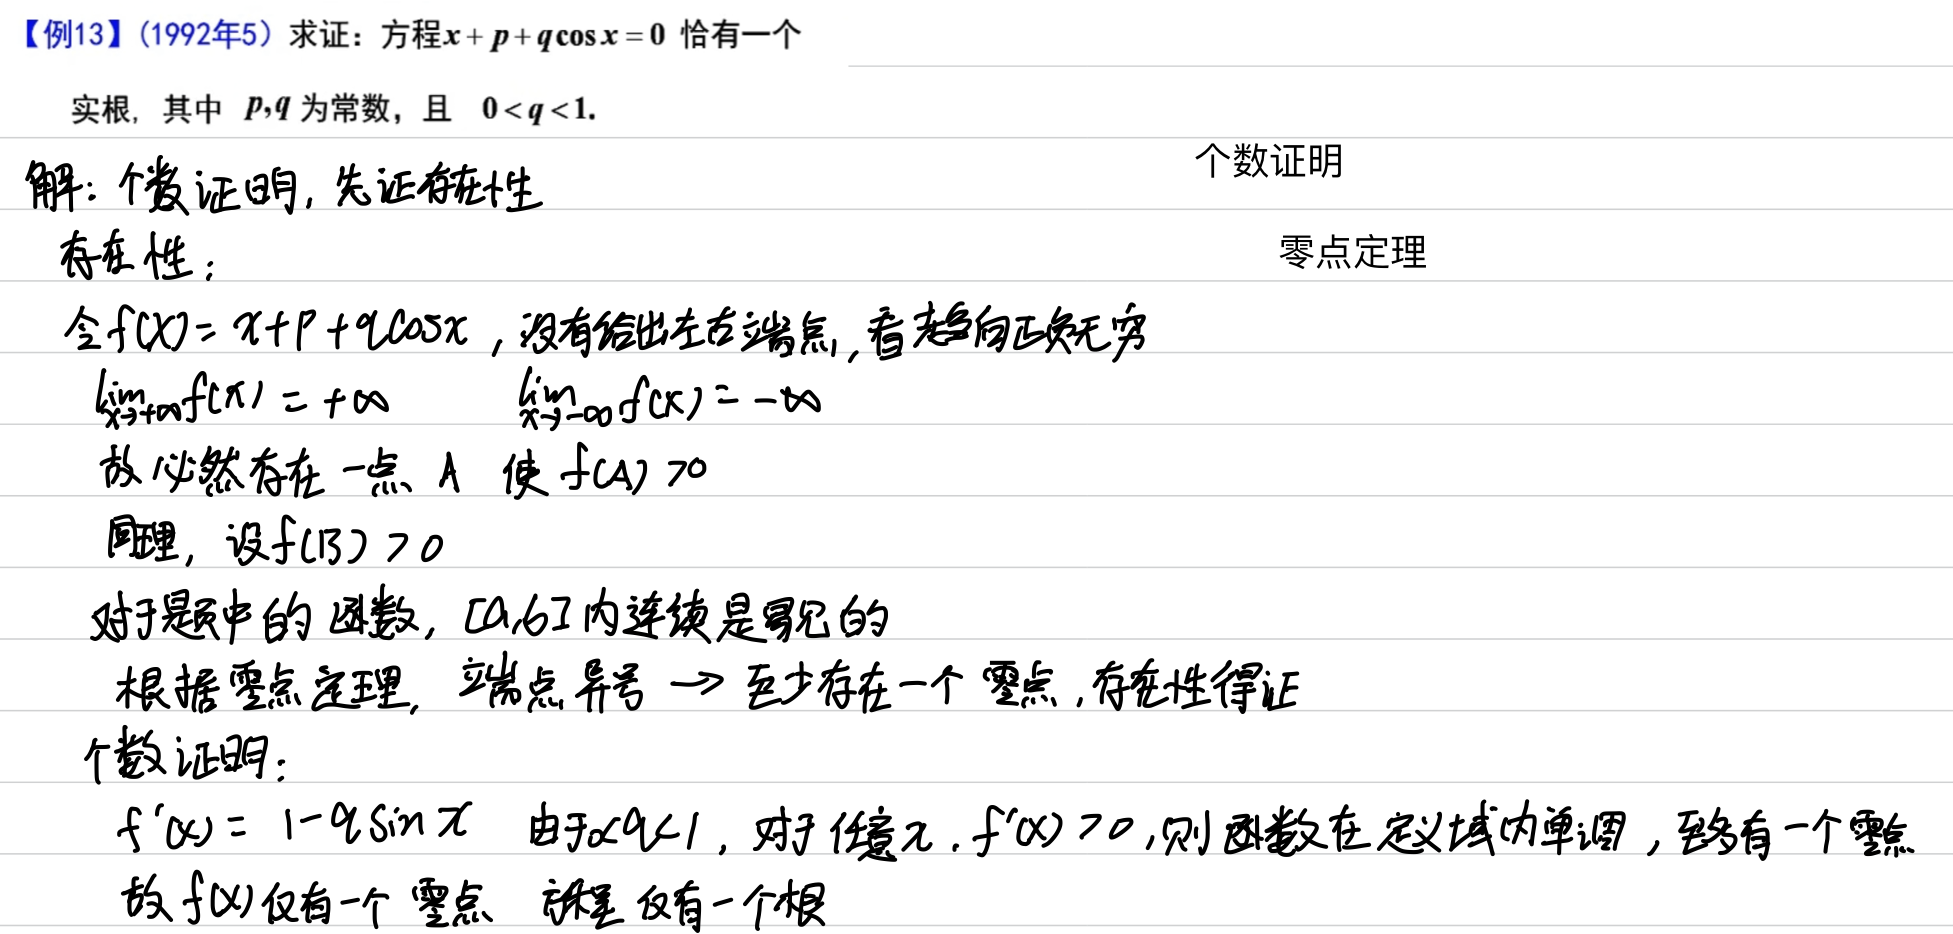 【例13】(1992年5) 求证：方程x + p + q cos x = 0 恰有一个
实根，其中 p,q 为常数，且 0 < q < 1.
个数证明
解：个数证明，先证存在性
零点定理
存在性：
令f(x)= x+p+qcosx，没有给出左右端点，看趋向正负无穷
lim x→+∞ f(x) = +∞ lim x→-∞ f(x) = -∞
故必然存在一点 A 使 f(A) >0
同理，设f(B) > 0
对于题中的函数，[a,b]内连续是易见的
根据零点定理，端点异号 → 至少存在一个零点，存在性得证
个数证明：
f'(x) = 1-qsinx 由于0<q<1，对于任意x，f'(x)>0，则函数在定义域内单调，至多有一个零点
故f(x)仅有一个零点 方程仅有一个根